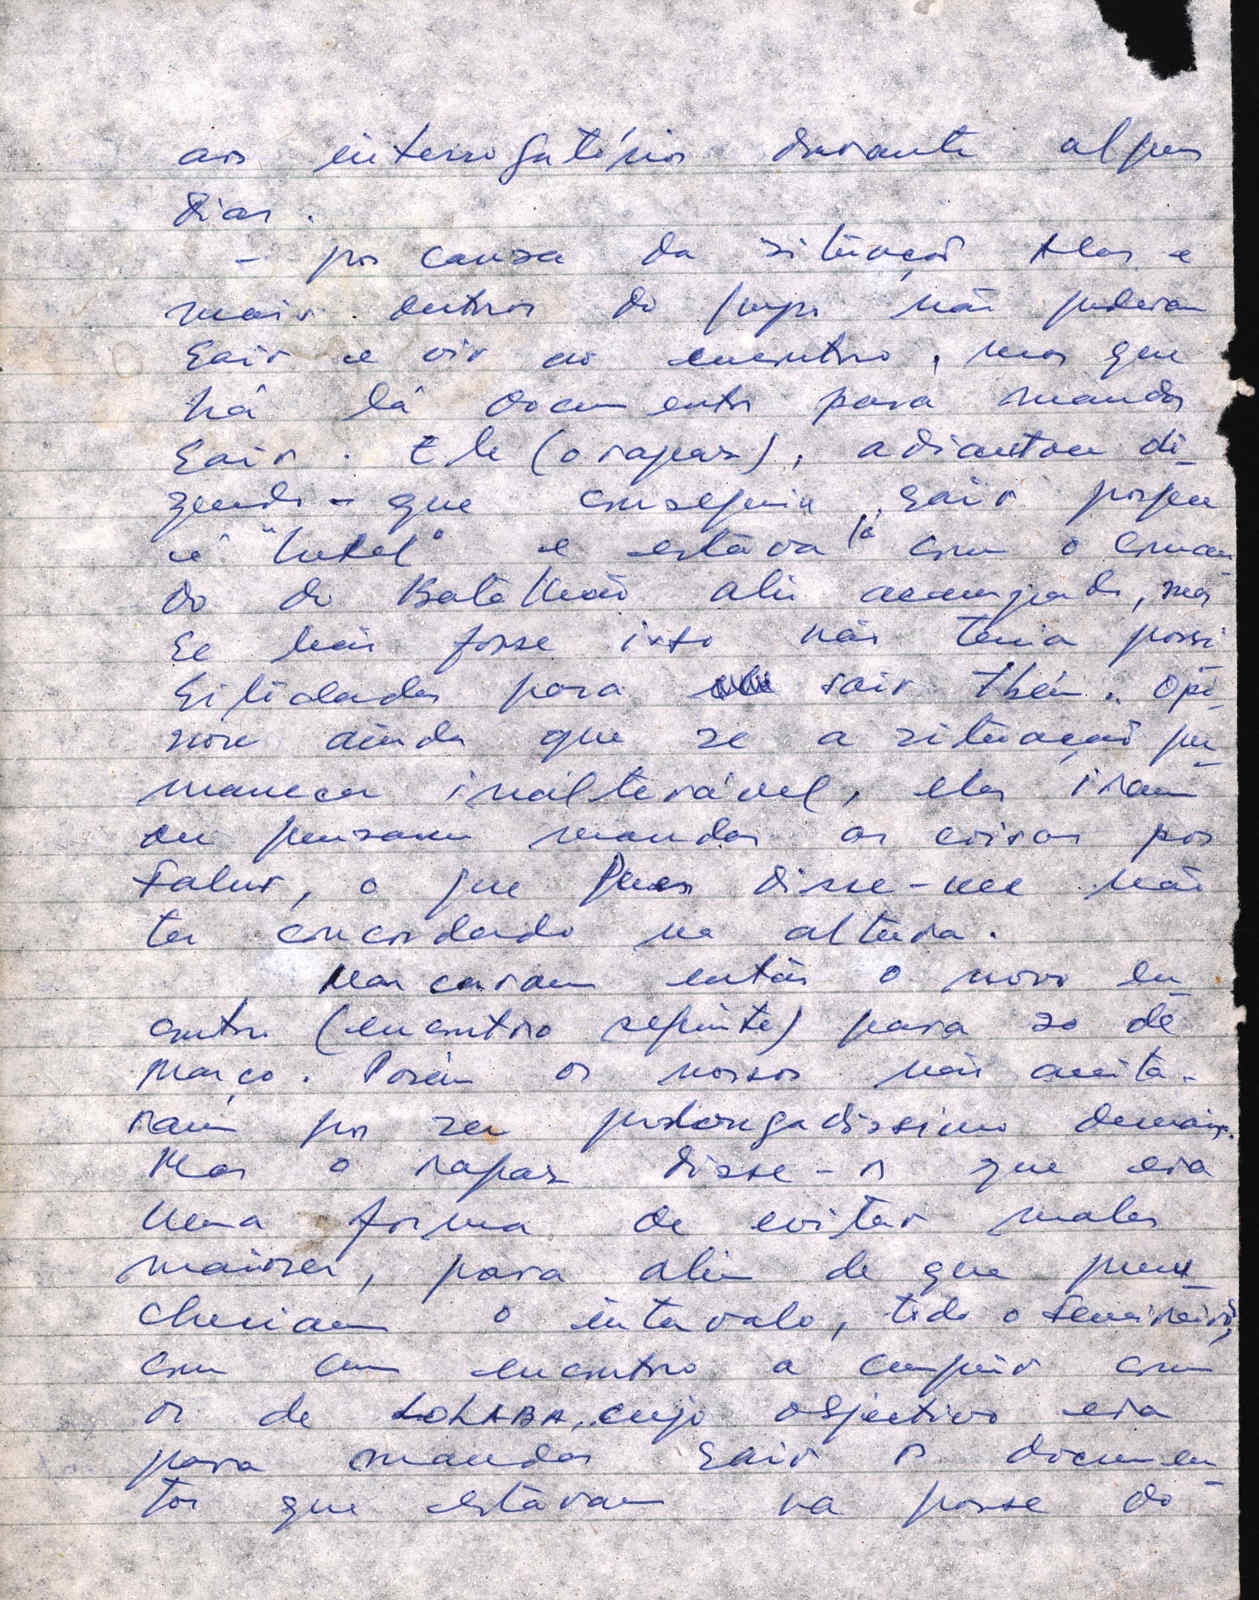 aos interrogatórios durante alguns
dias.
- por causa da situação eles e
mais outros do grupo não puderam
sair e vir ao encontro, mas que
há lá documentos para mandar
sair. Ele (o rapaz), adiantou di-
zendo - que conseguiu sair porque
é "Intel" e estava lá com o coman
do do Batalhão ali acampado, mas
se não fosse isto não teria possi
bilidades para sair tbém. Opi-
nou ainda que se a situação per-
manecer inalterável, eles iram
ou pensaram mandar as coisas por
, o que disse-me não
ter concordado na altura.
Marcaram então o novo en-
contro (encontro seguinte) para 20 de
Março. Porém os nossos não aceita-
ram por ser prolongadissimo demais.
Mas o rapaz disse-os que era
uma forma de evitar males
maiores, para além de que preen-
cheriam o intervalo, todo o Fevereiro,
com um encontro a cumprir com
os de LOLABA, cujo objectivo era
para mandar sair os documen-
tos que estavam na posse do